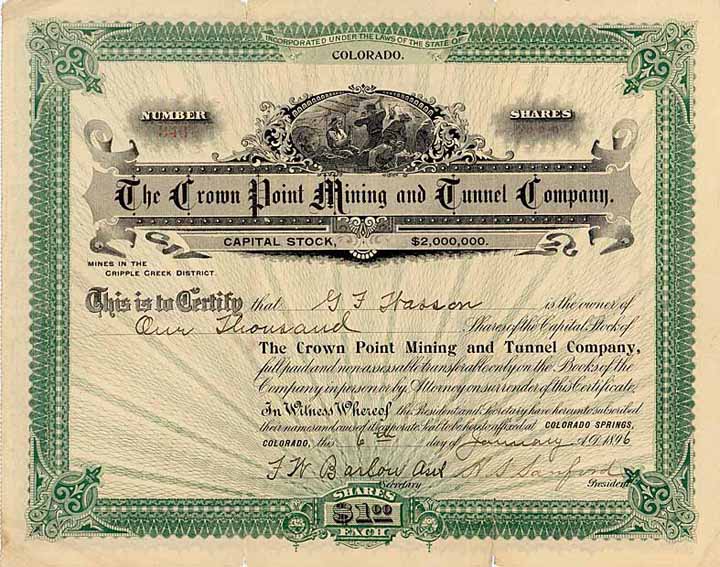 INCORPORATED UNDER THE LAWS OF THE STATE OF
COLORADO.
NUMBER
SHARES
The Crown Point Mining and Tunnel Company.
CAPITAL STOCK, $2,000,000.
MINES IN THE
CRIPPLE CREEK DISTRICT.
This is to Certify that G F Wasson is the owner of
One Thousand Shares of the Capital Stock of
The Crown Point Mining and Tunnel Company,
full paid and non assessable transferable only on the Books of the
Company in person or by Attorney on surrender of this Certificate.
In Witness Whereof the President and Secretary have hereunto subscribed
their names and caused its corporate Seal to be hereto affixed at COLORADO SPRINGS,
COLORADO, this 6th day of January A.D. 1896
F. W. Barlow Asst Sanford
Secretary President
SHARES
$1.00
EACH